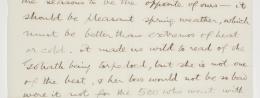 are seasons to be the opposite of ours — it
should be pleasant spring weather, which
must be better than extremes of heat
or cold. it made us wild to read of the
Goliath being torpedoed, but she is not one
of the best, & her loss would not be so bad
were it not for the 500 who went with